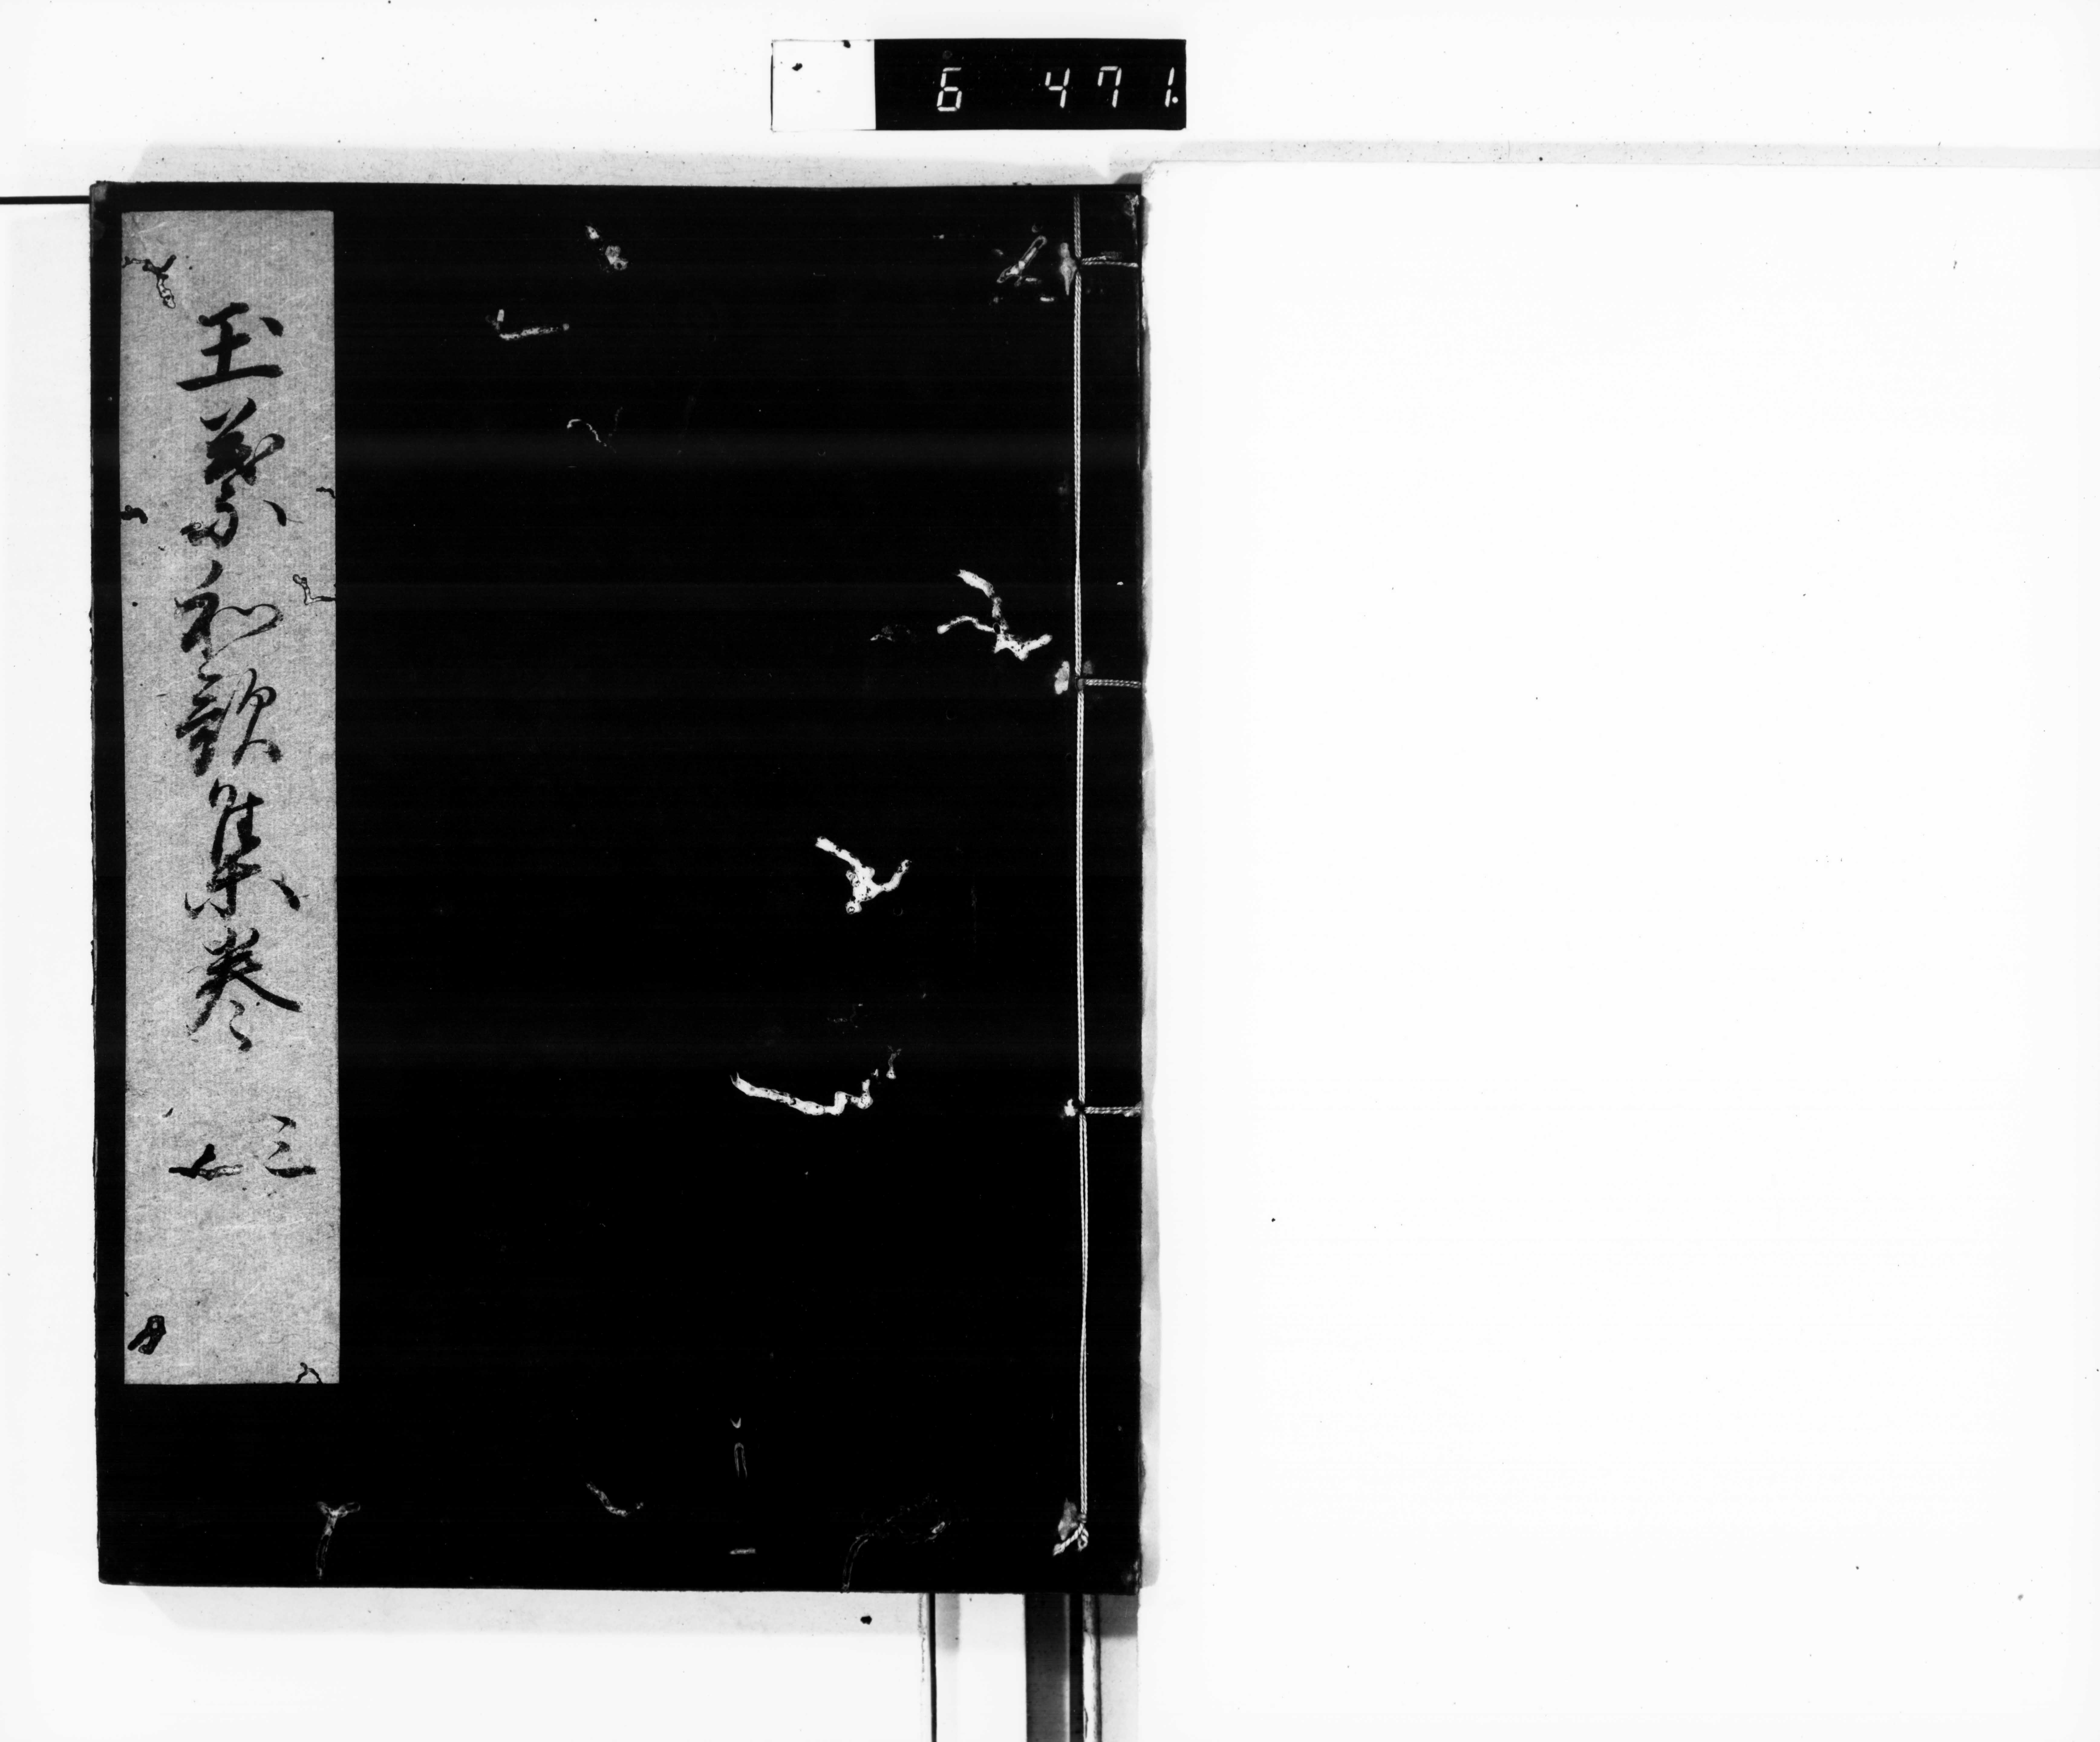 6 471.
玉葉和歌集巻 三
七